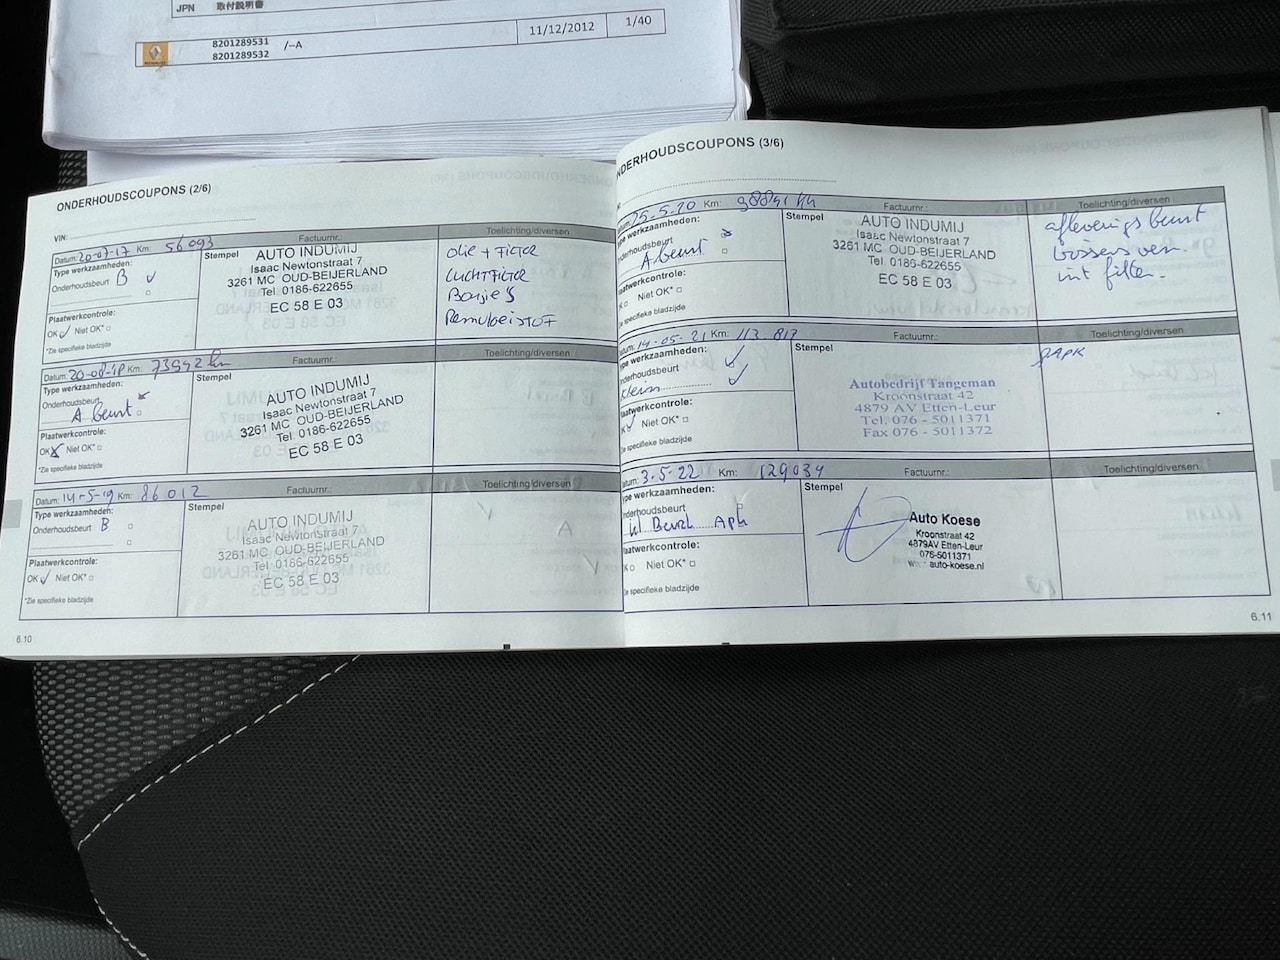 JPN 取付説明書
8201289531
8201289532
/–A
11/12/2012
1/40
ONDERHOUDSCOUPONS (2/6)
VIN:
Datum: 20-07-17 Km: 56093 Factuurnr.: Toelichting/diversen
Type werkzaamheden:
Onderhoudsbeurt B ✓
Plaatwerkcontrole:
OK ✓ Niet OK* □
*Zie specifieke bladzijde
Stempel
AUTO INDUMIJ
Isaac Newtonstraat 7
3261 MC OUD-BEIJERLAND
Tel. 0186-622655
EC 58 E 03
olie + Filter
LUCHTFILTER
Bougie's
Remvloeistof
Datum: 20-08-18 Km: 73942 km Factuurnr.: Toelichting/diversen
Type werkzaamheden:
Onderhoudsbeurt
A beurt
Plaatwerkcontrole:
OK X Niet OK* □
*Zie specifieke bladzijde
Stempel
AUTO INDUMIJ
Isaac Newtonstraat 7
3261 MC OUD-BEIJERLAND
Tel. 0186-622655
EC 58 E 03
Datum: 14-5-19 Km: 86012 Factuurnr.: Toelichting/diversen
Type werkzaamheden:
Onderhoudsbeurt B □
Plaatwerkcontrole:
OK ✓ Niet OK* □
*Zie specifieke bladzijde
Stempel
AUTO INDUMIJ
Isaac Newtonstraat 7
3261 MC OUD-BEIJERLAND
Tel. 0186-622655
EC 58 E 03
6.10
NDERHOUDSCOUPONS (3/6)
25-5-20 Km: 98841 km Factuurnr.: Toelichting/diversen
Type werkzaamheden:
nderhoudsbeurt
A beurt
laatwerkcontrole:
Niet OK* □
Zie specifieke bladzijde
Stempel
AUTO INDUMIJ
Isaac Newtonstraat 7
3261 MC OUD-BEIJERLAND
Tel. 0186-622655
EC 58 E 03
afleverings beurt
int filter.
atum: 14-05-21 Km: 113 817 Factuurnr.: Toelichting/diversen
ype werkzaamheden: ✓
nderhoudsbeurt ✓
klein
laatwerkcontrole:
K ✓ Niet OK* □
Zie specifieke bladzijde
Stempel
Autobedrijf Tangeman
Kroonstraat 42
4879 AV Etten-Leur
Tel. 076 - 5011371
Fax 076 - 5011372
APK
atum: 3-5-22 Km: 129034 Factuurnr.: Toelichting/diversen
ype werkzaamheden:
nderhoudsbeurt
kl Beurt Apk
laatwerkcontrole:
K □ Niet OK* □
e specifieke bladzijde
Stempel
Auto Koese
Kroonstraat 42
4879AV Etten-Leur
076-5011371
www.auto-koese.nl
6.11